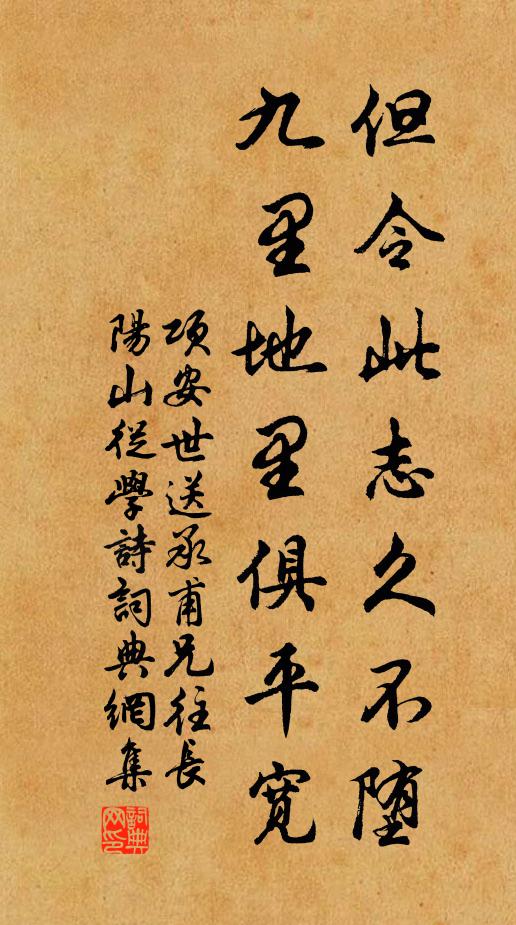 但令此志久不堕
九里地里俱平寛
項安世送承甫兄往長
陽山從學詩詞典網集
詞典网印